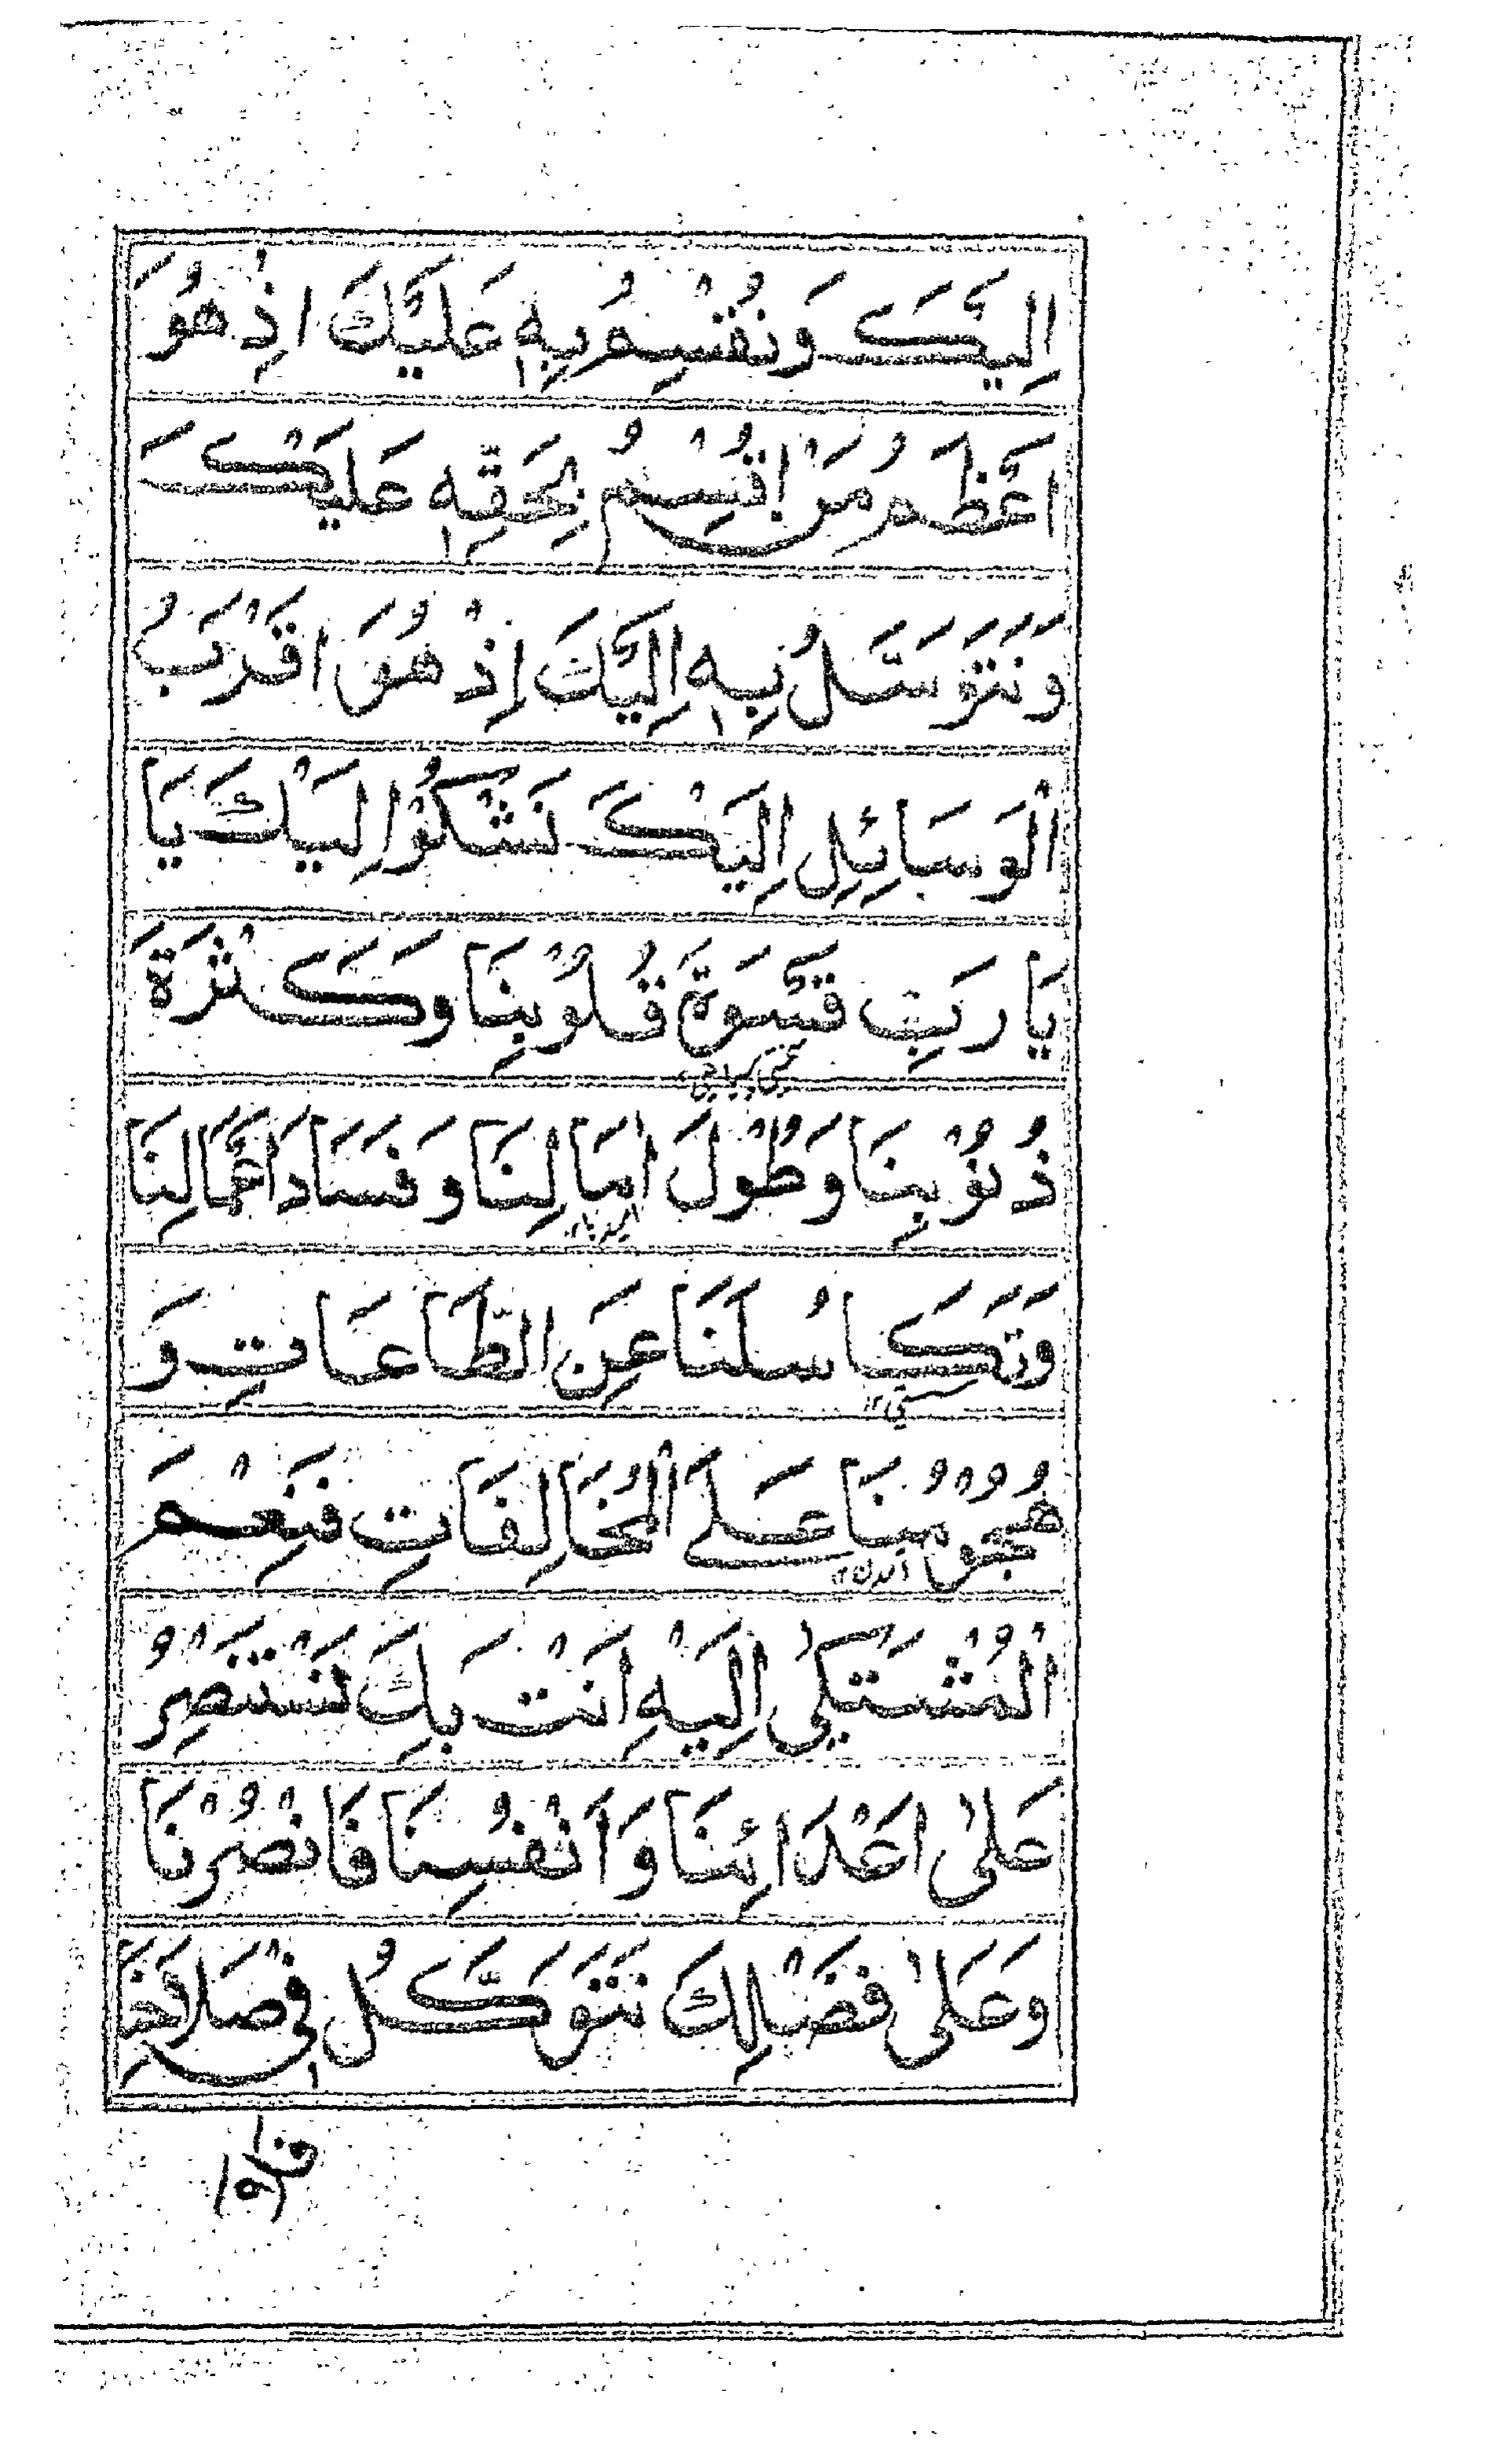 اِلَيْكَ وَنُقْسِمُ بِهٖ عَلَيْكَ اِذْ هُوَ
اَعْظَمُ مَنْ اُقْسِمُ بِحَقِّهٖ عَلَيْكَ
وَنَتَوَسَّلُ بِهٖ اِلَيْكَ اِذْ هُوَ اَقْرَبُ
الْوَسَائِلِ اِلَيْكَ نَشْكُوْا لَيْكَ يَا
يَا رَبِّ قَسْوَةَ قُلُوْبِنَا وَكَثْرَةَ
ذُنُوْبِنَا وَطُوْلَ اٰمَالِنَا وَفَسَادَ اَعْمَالِنَا
وَتَكَاسُلَنَا عَنِ الطَّاعَاتِ وَ
هُجُوْمَنَا عَلَى الْمُخَالِفَاتِ فَنِعْمَ
الْمُشْتَكٰى اِلَيْهِ اَنْتَ بِكَ نَسْتَنْصِرُ
عَلٰى اَعْدَائِنَا وَاَنْفُسِنَا فَانْصُرْنَا
وَعَلٰى فَضْلِكَ نَتَوَكَّلُ فِيْ صَلَاحِنَا